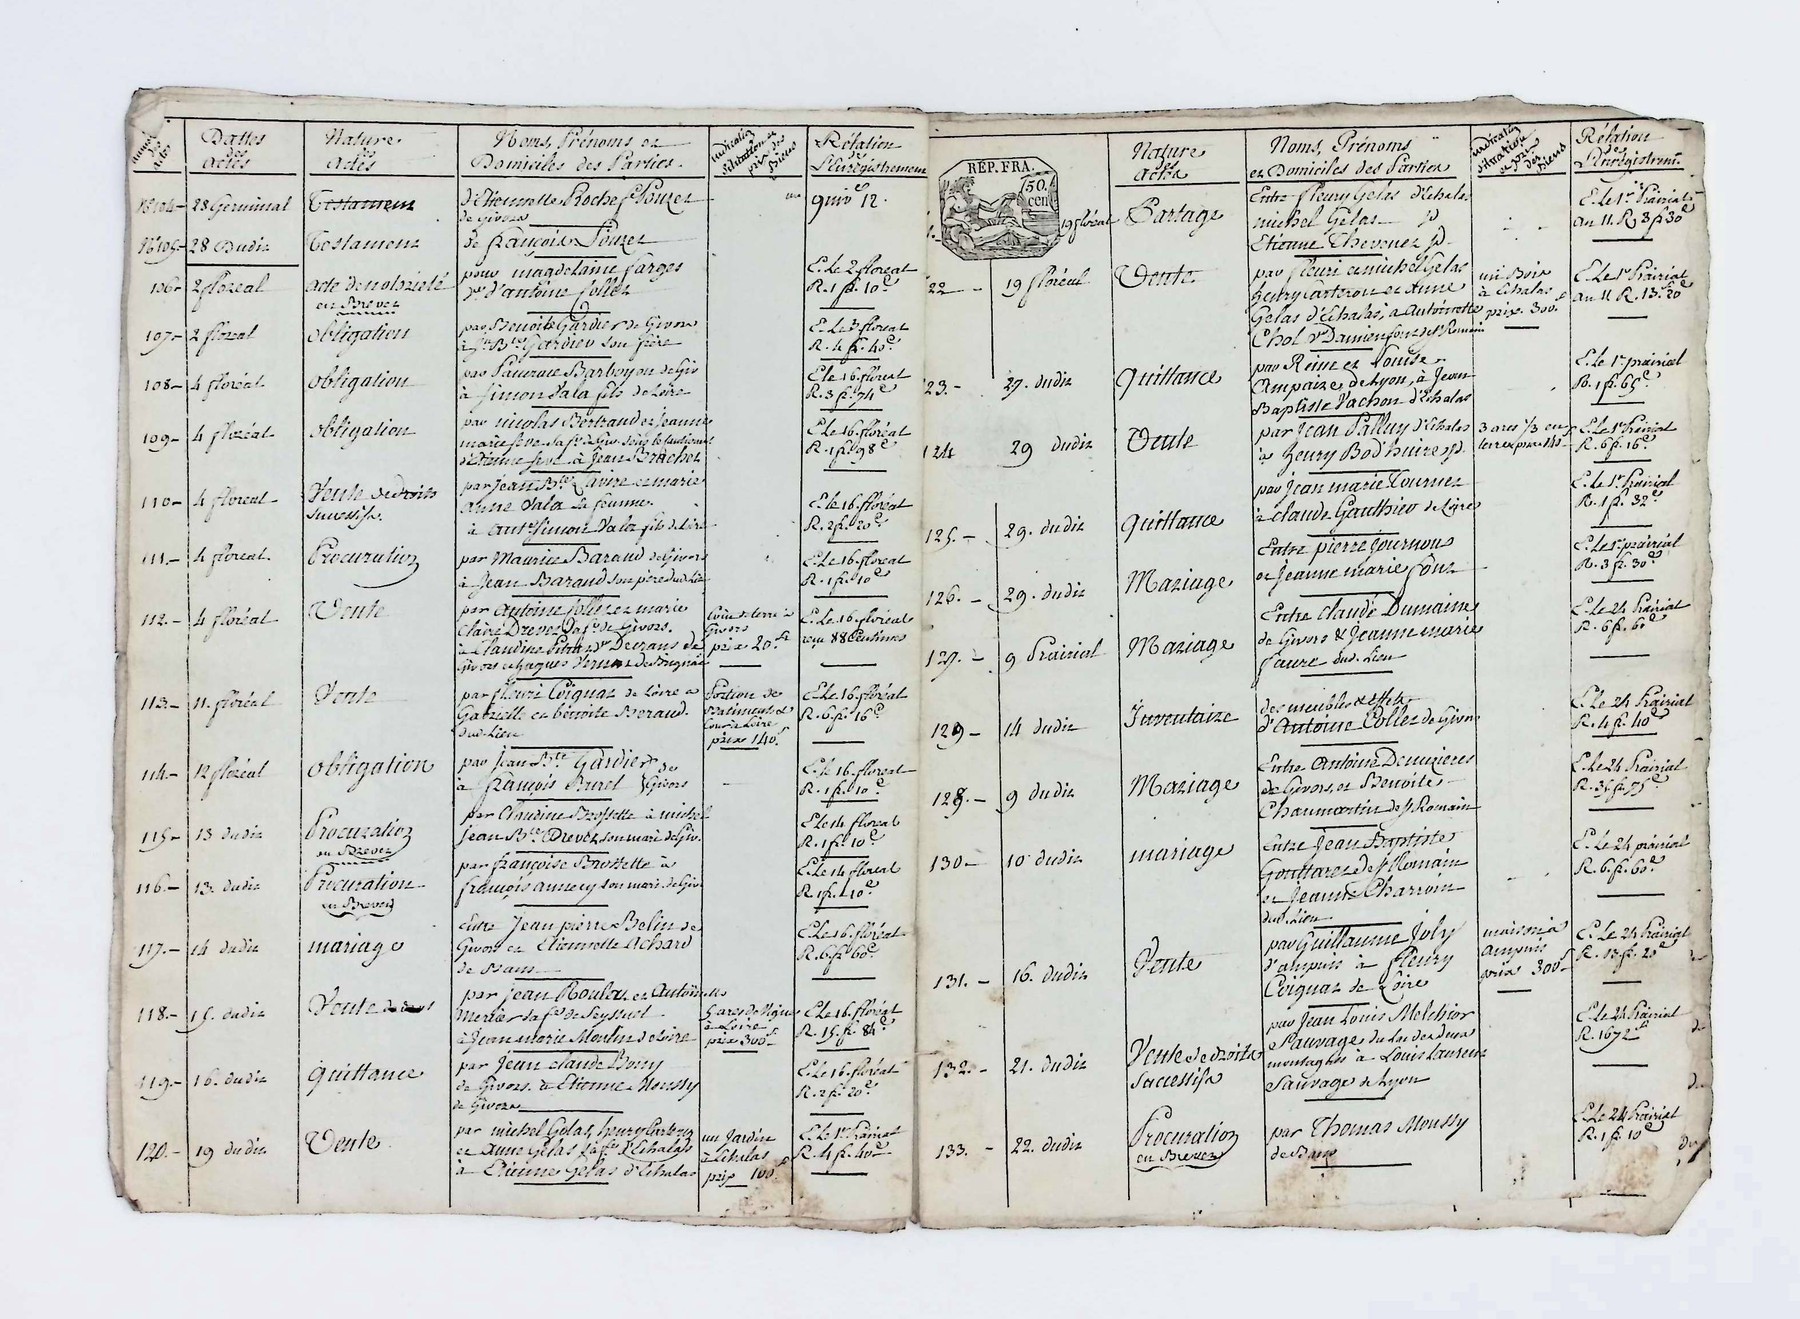 Dattes des actes
Nature des actes
Noms, Prénoms et Domiciles des Parties.
Indication situation et prix des Biens
Rélation de L'Enrégistrement
No 104- 28 Germinal Testament d'Etiennette Roche fe Pouzet
de Givors
quivt 12.
No 105- 28 Dudit Testament de françois Pouzet
106- 2 floréal acte de notoriété
en Brevet
pour magdelaine farges
C. Le 2 floréal
R. 1 f. 10c
107- 2 floreal obligation par Benoite Gardier de Givors
à Jn Bte Gardier son frère
E. Le 3 floréal
R. 4 f. 40c
108- 4 floréal obligation
à Simon Vala fils de Loire
E le 16. floreal
R. 3 f. 74c
109- 4 floréal obligation par nicolas Bertrand et Jeanne
E Le 16. floréal
R. 1 f. 98c
110- 4 floreal Vente de droits
successifs.
par Jean Bte Lavire et marie
anne Vala sa femme
à Ante Simon Vala fils de Loire
E. le 16. floréal
R. 2 f. 20c
111.- 4 floreal. Procuration
par Maurice Baraud de Givors
à Jean Baraud son père dud. Lieu
E. Le 16. floreal
R. 1 f. 10c
112.- 4 floréal Vente
par Antoine Jolliet et marie
Claire Drevet sa fe de Givors.
prix 20. f
E. Le 16. floréal
reçu 88 Centimes
113.- 11. floréal Vente
par fleuri Coignat de Loire à
Gabrielle et bénoite Beraud.
dud. Lieu
Portion de
Batiments et
prix 140f
E. Le 16. floréal
R. 6. f. 16c
114.- 12 floréal obligation
par Jean Bte Gardier
à françois Burel de Givors
E. le 16. floreal
R. 1 f. 10c
115.- 13 dudit Procuration
en Brevet
par Claudine Brossette à michel
Jean Bte Drevet son mari de Giv.
E Le 14 floreal
R. 1 f. 10c
116.- 13. dudit Procuration
en Brevet
par françoise Brossette à
françois annecy son mari de Giv.
E. Le 14 floreal
R. 1 f. 10c
117.- 14 dudit mariage
Entre Jean pierre Belin de
Givors et Etiennette Achard
E Le 16. floréal
R. 6. f. 60c
118.- 15. dudit Vente
par Jean Roulet et Antoinette
Mercier sa fe de Seyssuel
à Jean marie Moulin de Loire
à Loire
prix 300f
E Le 16. floréal
R. 15. f. 84c
119.- 16. dudit Quittance
par Jean Claude Bony
de Givors. à Etienne Moussy
de Givors
E Le 16. floréal
R. 2 f. 20c
120.- 19 dudit Vente
par michel Gelas, henry Carteron
et Anne Gelas sa fe d'Echalas
à Etienne Gelas d'Echalas
un Jardin
à Echalas
prix 100.f
E. Le 1er Prairial
R. 4 f. 40c
RÉP. FRA.
50.
cen
Nature des actes
Noms, Prénoms
et Domiciles des Parties
Indication situation et prix des Biens
Rélation de L'Enrégistremt
19 floréal Partage
Entre fleury Gelas d'Echalas
michel Gelas
Etienne Thevenet
E. Le 1er Prairial
an 11. R. 3 f. 30c
22 - 19 floréal Vente
par fleuri et michel Gelas
henry Carteron et Anne
Gelas d'Echalas, à Antoinette
Chol ve Damien font de St Romain
un Bois
à Echalas
prix. 300.f
E Le 1er Prairial
an 11 R. 13 f. 20c
23.- 29. dudit Quittance
par Reine et Louise
Ampaire de Lyon, à Jean
Baptiste Vachon d'Echalas
E Le 1er prairial
R. 1 f. 65c
124 29 dudit Vente
par Jean Palluy d'Echalas
3 ares 1/3 en
terre prix 140f
E. Le 1er Prairial
R. 6 f. 16c
125.- 29. dudit Quittance
par Jean marie Tournet
à Claude Gauthier de Loire
E Le 1er Prairial
R. 1 f. 32c
126.- 29. dudit Mariage
Entre pierre Journoud
et Jeanne marie
E. Le 1er prairial
R. 3 f. 30c
129.- 9 Prairial Mariage
Entre Claude Dumaine
de Givors & Jeanne marie
faure dud. Lieu
E Le 24 Prairial
R. 6 f. 60c
129- 14 dudit Inventaire
des meubles et effets
d'Antoine Colliet de Givors
E Le 24 Prairial
R. 4 f. 40c
128.- 9 dudit Mariage
Entre Antoine Demizieres
de Givors, et Benoite
Chaumartin de St Romain
E. Le 24 Prairial
130- 10 dudit mariage
Entre Jean Baptiste
Gouttaret de St Romain
et Jeanne Charroin
dud. Lieu
E. Le 24 prairial
R. 6. f. 60c
131.- 16. dudit Vente
par Guillaume Joly
d'ampuis à fleury
Coignat de Loire
maison à
ampuis
prix 300f
E. Le 24 Prairial
R. 13 f. 20c
132.- 21. dudit Vente de droits
successifs
par Jean Louis Melchior
Sauvage du Lac des deux
montagnes à Louis Laurent
Sauvage de Lyon
E Le 24 Prairial
R. 1672f
133.- 22. dudit Procuration
en Brevet
par Thomas Moussy
E Le 24 Prairial
R. 1 f. 10c